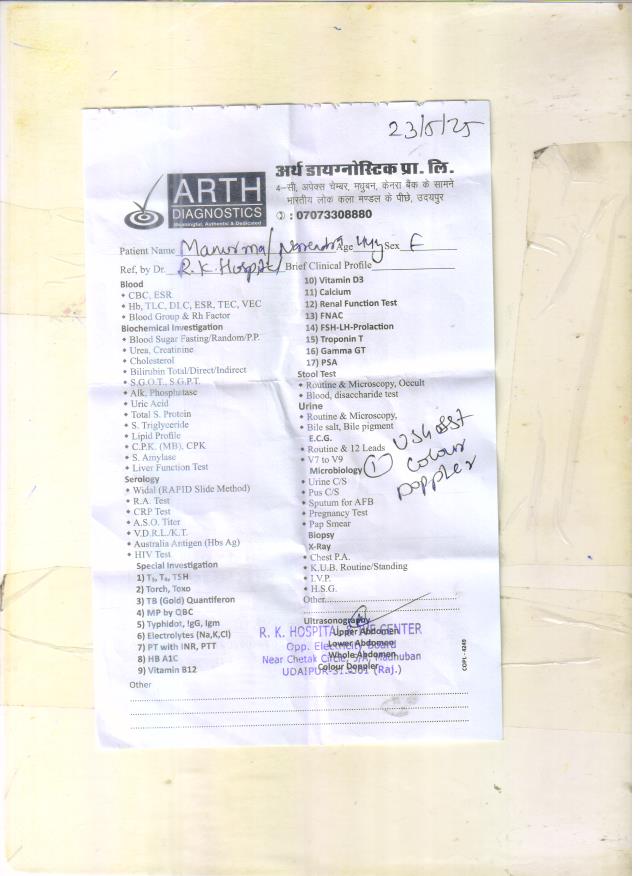 23/5/25
ARTH
DIAGNOSTICS
Meaningful, Authentic & Dedicated
अर्थ डायग्नोस्टिक प्रा. लि.
4-सी, अपेक्स चेम्बर, मधुबन, केनरा बैंक के सामने
भारतीय लोक कला मण्डल के पीछे, उदयपुर
: 07073308880
Patient Name Age 44y Sex F
Ref, by Dr. R.K. Hospital Brief Clinical Profile
Blood
• CBC, ESR
• Hb, TLC, DLC, ESR, TEC, VEC
• Blood Group & Rh Factor
Biochemical Investigation
• Blood Sugar Fasting/Random/P.P.
• Urea, Creatinine
• Cholesterol
• Bilirubin Total/Direct/Indirect
• S.G.O.T., S.G.P.T.
• Alk. Phosphatase
• Uric Acid
• Total S. Protein
• S. Triglyceride
• Lipid Profile
• C.P.K. (MB), CPK
• S. Amylase
• Liver Function Test
Serology
• Widal (RAPID Slide Method)
• R.A. Test
• CRP Test
• A.S.O. Titer
• V.D.R.L./K.T.
• Australia Antigen (Hbs Ag)
• HIV Test
Special Investigation
1) T3, T4, TSH
2) Torch, Toxo
3) TB (Gold) Quantiferon
4) MP by QBC
5) Typhidot, IgG, Igm
6) Electrolytes (Na,K,Cl)
7) PT with INR, PTT
8) HB A1C
9) Vitamin B12
10) Vitamin D3
11) Calcium
12) Renal Function Test
13) FNAC
14) FSH-LH-Prolaction
15) Troponin T
16) Gamma GT
17) PSA
Stool Test
• Routine & Microscopy, Occult
• Blood, disaccharide test
Urine
• Routine & Microscopy,
• Bile salt, Bile pigment
E.C.G.
• Routine & 12 Leads
• V7 to V9
Microbiology
• Urine C/S
• Pus C/S
• Sputum for AFB
• Pregnancy Test
• Pap Smear
Biopsy
X-Ray
• Chest P.A.
• K.U.B. Routine/Standing
• I.V.P.
• H.S.G.
Other
① USG
Colour
Doppler
Ultrasonography
Upper Abdomen
Lower Abdomen
Whole Abdomen
Colour Doppler
R. K. HOSPITAL CENTER
Opp. Electricity Board
Near Chetak Circle, Madhuban
UDAIPUR-313001 (Raj.)
COPL - 4249
Other